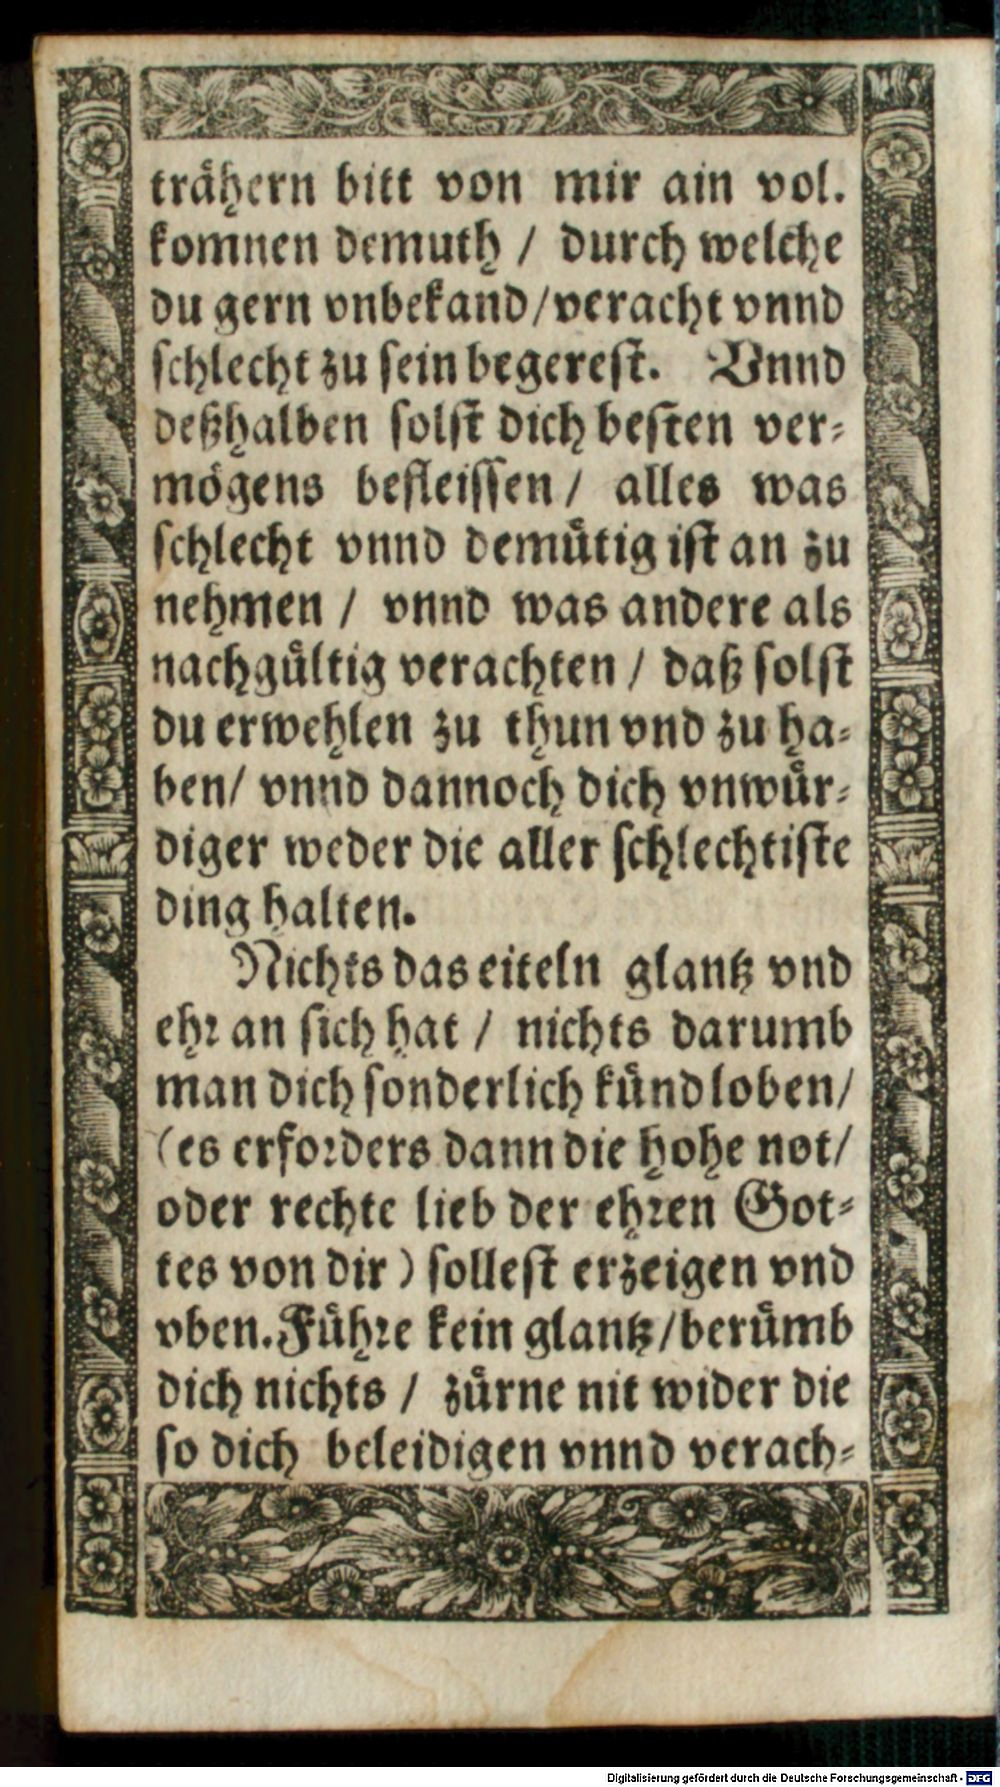 trähern bitt von mir ain vol.
komnen demuth / durch welche
du gern vnbekand/veracht vnnd
schlecht zu sein begerest. Vnnd
deßhalben solst dich besten ver-
mögens befleissen / alles was
schlecht vnnd demuͤtig ist an zu
nehmen / vnnd was andere als
nachguͤltig verachten / daß solst
du erwehlen zu thun vnd zu ha-
ben/ vnnd dannoch dich vnwuͤr-
diger weder die aller schlechtiste
ding halten.
Nichts das eiteln glantz vnd
ehr an sich hat / nichts darumb
man dich sonderlich kuͤnd loben/
(es erforders dann die hohe not/
oder rechte lieb der ehren Got-
tes von dir) sollest erzeigen vnd
vben. Fuͤhre kein glantz/beruͤmb
dich nichts / zuͤrne nit wider die
so dich beleidigen vnnd verach-
Digitalisierung gefördert durch die Deutsche Forschungsgemeinschaft - DFG